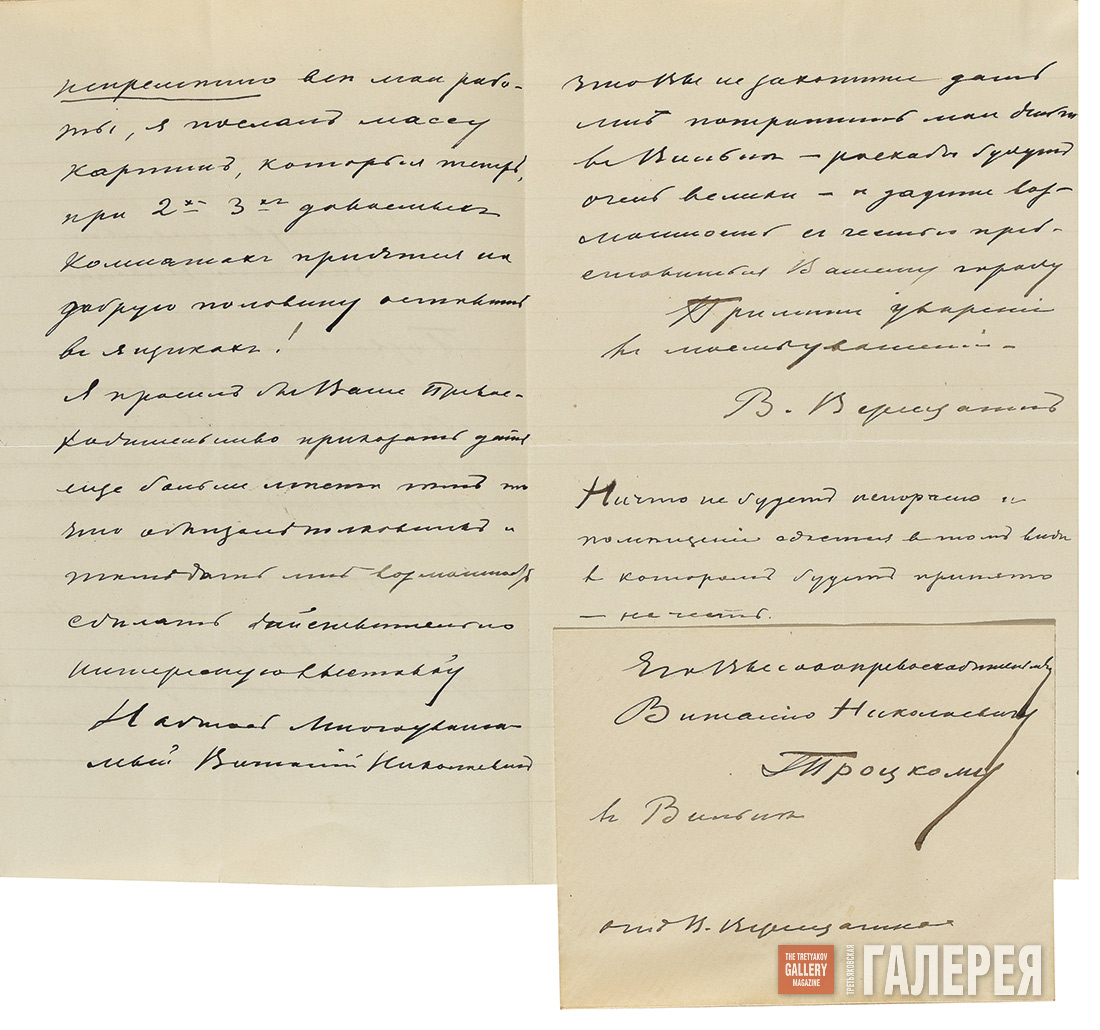 непременно все мои рабо-
ты, я послалъ массу
картинъ, которыя теперь,
при 2хъ 3хъ даваемыхъ
комнатахъ придется на
добрую половину оставить
въ ящикахъ!
Я просилъ бы Ваше Превос-
ходительство приказать дать
еще больше места
что
дать мнѣ возможность
сдѣлать дѣйствительно
интересную выставку
Надѣюсь Многоуважае-
мый Виталій Николаевичъ
что Вы не захотите дать
мнѣ потратить мои деньги
въ Вильнѣ — расходы будутъ
очень велики — и дадите воз-
можность съ честью пред-
ставиться Вашему городу
Примите увѣреніе
въ моемъ уваженіи —
В. Верещагинъ
Ничто не будетъ испорчено и
помѣщеніе сдастся в томъ видѣ
в которомъ будетъ принято
— на честь.
Его Высокопревосходительству
Виталію Николаевичу
Троцкому
въ Вильнѣ
отъ В. Верещагина
THE TRETYAKOV
GALLERY
MAGAZINE
ТРЕТЬЯКОВСКАЯ
ГАЛЕРЕЯ